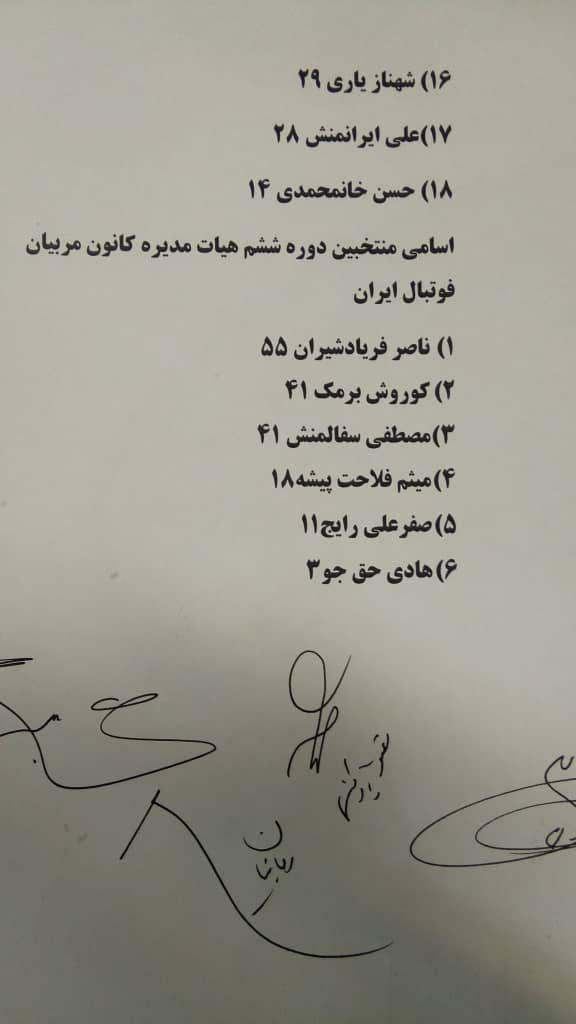 ۱۶) شهناز یاری ۲۹
۱۷)علی ایرانمنش ۲۸
۱۸) حسن خانمحمدی ۱۴
اسامی منتخبین دوره ششم هیات مدیره کانون مربیان
فوتبال ایران
۱) ناصر فریادشیران ۵۵
۲) کوروش برمک ۴۱
۳)مصطفی سفالمنش ۴۱
۴)میثم فلاحت پیشه۱۸
۵)صفرعلی رایج۱۱
۶)هادی حق جو۳